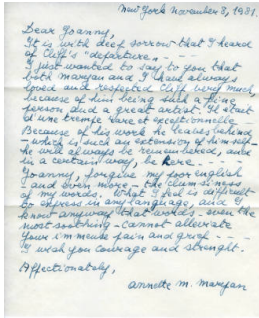 New York November 8, 1981.
Dear Joanny,
It is with deep sorrow that I heard
of Cliff's "departure„ - - - -
I just wanted to say to you that
both Maryan and I have always
loved and respected Cliff very much
because of him being such a fine
person and a great artist. Il était
d'une trempe rare et exceptionnelle
Because of his work he leaves behind
- which is such an extension of himself -
he will always be remembered, and
in a certain way, be here - - - -
Joanny, forgive my poor english
- and even more - the clumsiness
of my words. What I feel is difficult
to express in any language, and I
know anyway that words - even the
most soothing - cannot alleviate
your immense pain and grief - - -
I wish you courage and strenght.
Affectionately,
Annette M. Maryan